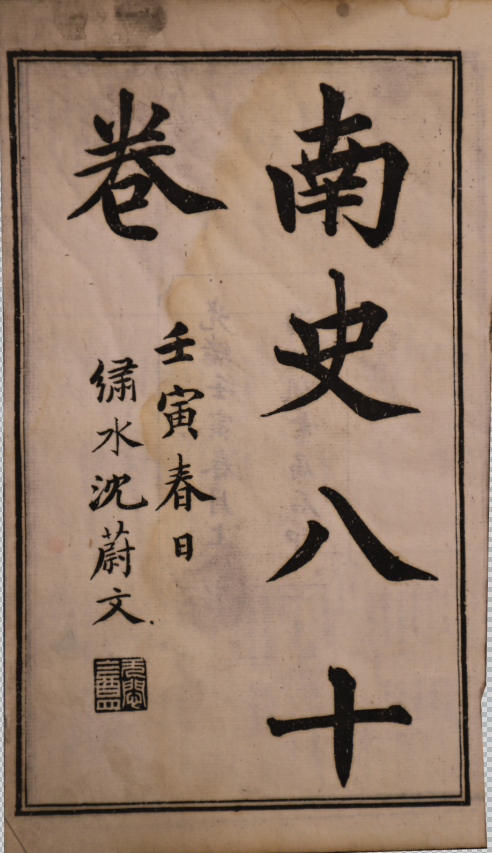 南史八十
卷
壬寅春日
繡水沈蔚文